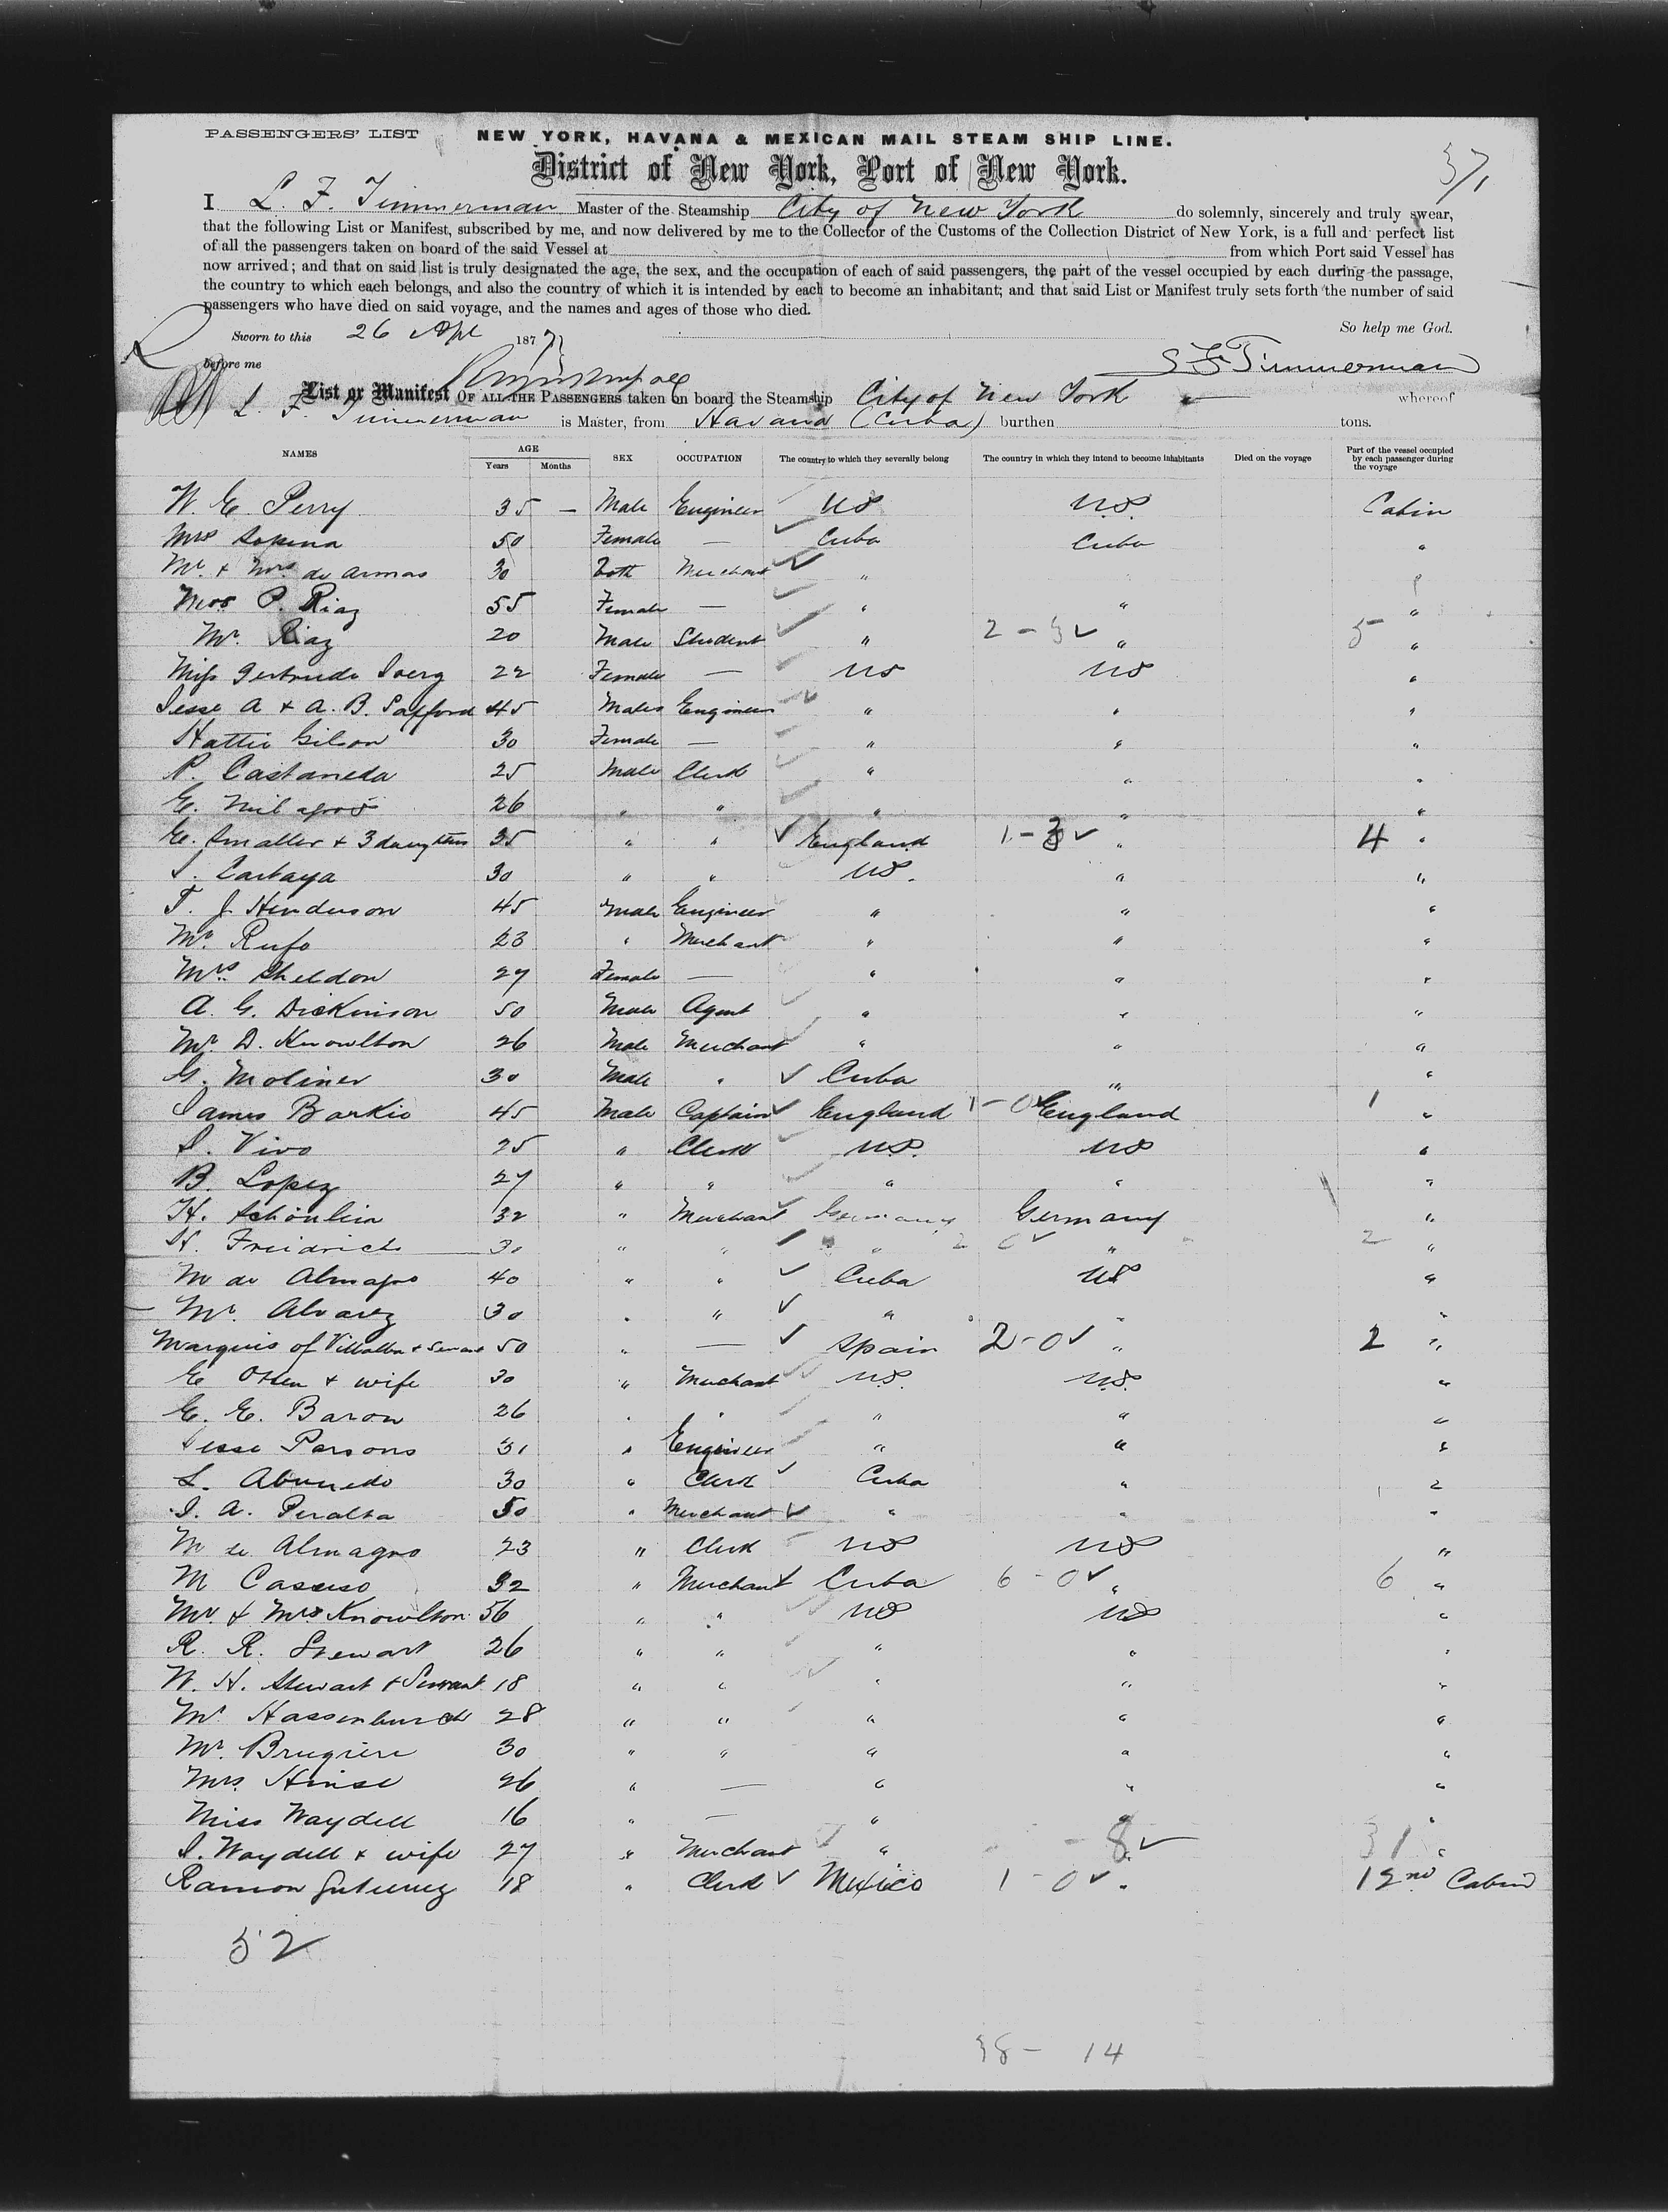 PASSENGERS' LIST NEW YORK, HAVANA & MEXICAN MAIL STEAM SHIP LINE.
District of New York, Port of New York.
I L. F. Timmerman Master of the Steamship City of New York do solemnly, sincerely and truly swear,
that the following List or Manifest, subscribed by me, and now delivered by me to the Collector of the Customs of the Collection District of New York, is a full and perfect list
of all the passengers taken on board of the said Vessel at from which Port said Vessel has
now arrived; and that on said list is truly designated the age, the sex, and the occupation of each of said passengers, the part of the vessel occupied by each during the passage,
the country to which each belongs, and also the country of which it is intended by each to become an inhabitant; and that said List or Manifest truly sets forth the number of said
passengers who have died on said voyage, and the names and ages of those who died.
So help me God.
Sworn to this 26 Apl 1877
before me L F Timmerman
List or Manifest OF ALL THE PASSENGERS taken on board the Steamship City of New York whereof
L. F. Timmerman is Master, from Havana (Cuba) burthen tons.
NAMES AGE Years Months SEX OCCUPATION The country to which they severally belong The country in which they intend to become inhabitants Died on the voyage Part of the vessel occupied by each passenger during the voyage
W. E. Perry 35 — Male Engineer US U.S. Cabin
Mrs Sopena 50 Female — Cuba Cuba "
Mr. & Mrs. de Armas 30 Both Merchant "
Mrs P. Riaz 55 Female — " " "
Mr. Riaz 20 Male Student " 2 - 3 " 5 "
Miss Gertrude Joerg 22 Female — US US "
Jesse A & A. B. Safford 45 Males Engineer " " "
Hattie Gilson 30 Female — " " "
P. Castaneda 25 Male Clerk " " "
E. Milagros 26 " " " " "
E. Smaller & 3 daughters 35 " " England 1 - 3 " 4 "
J. Cartaya 30 " " US. " "
T. J. Henderson 45 Male Engineer " " "
Mr. Rufo 23 " Merchant " " "
Mrs. Sheldon 27 Female — " " "
A. G. Dickinson 50 Male Agent " " "
Mr. D. Knowlton 26 Male Merchant " " "
G. Moliner 30 Male " Cuba " "
James Barkie 45 Male Captain England 1 - 0 England 1 "
J. Vivo 25 " Clerk US. US "
B. Lopez 27 " " " " "
H. Schönlein 32 " Merchant Germany Germany "
H. Freidrichs 30 " " " 2 0 " 2 "
M de Almagro 40 " " Cuba US "
Mr. Alvarez 30 " " " " "
Marquis of Villalba & Servant 50 " — Spain 2 - 0 " 2 "
E Olsen & wife 30 " Merchant U.S. U.S. "
E. E. Baron 26 " " " " "
Jesse Parsons 31 " Engineer " " "
L. 30 " Clerk Cuba " "
J. A. Peralta 50 " Merchant " " "
M de Almagro 23 " Clerk US US "
M Casuso 32 " Merchant Cuba 6 - 0 " 6 "
Mr. & Mrs Knowlton 56 " " US US "
R. R. Stewart 26 " " " " "
W. H. Stewart & Servant 18 " " " " "
Mr. 28 " " " " "
Mr. Brugiere 30 " " " " "
Mrs. Hinse 26 " — " " "
Miss Waydell 16 " — " " "
J. Waydell & wife 27 " Merchant " - 8 31 "
Ramon Gutierrez 18 " Clerk Mexico 1 - 0 " 1 2nd Cabin
52
38 - 14